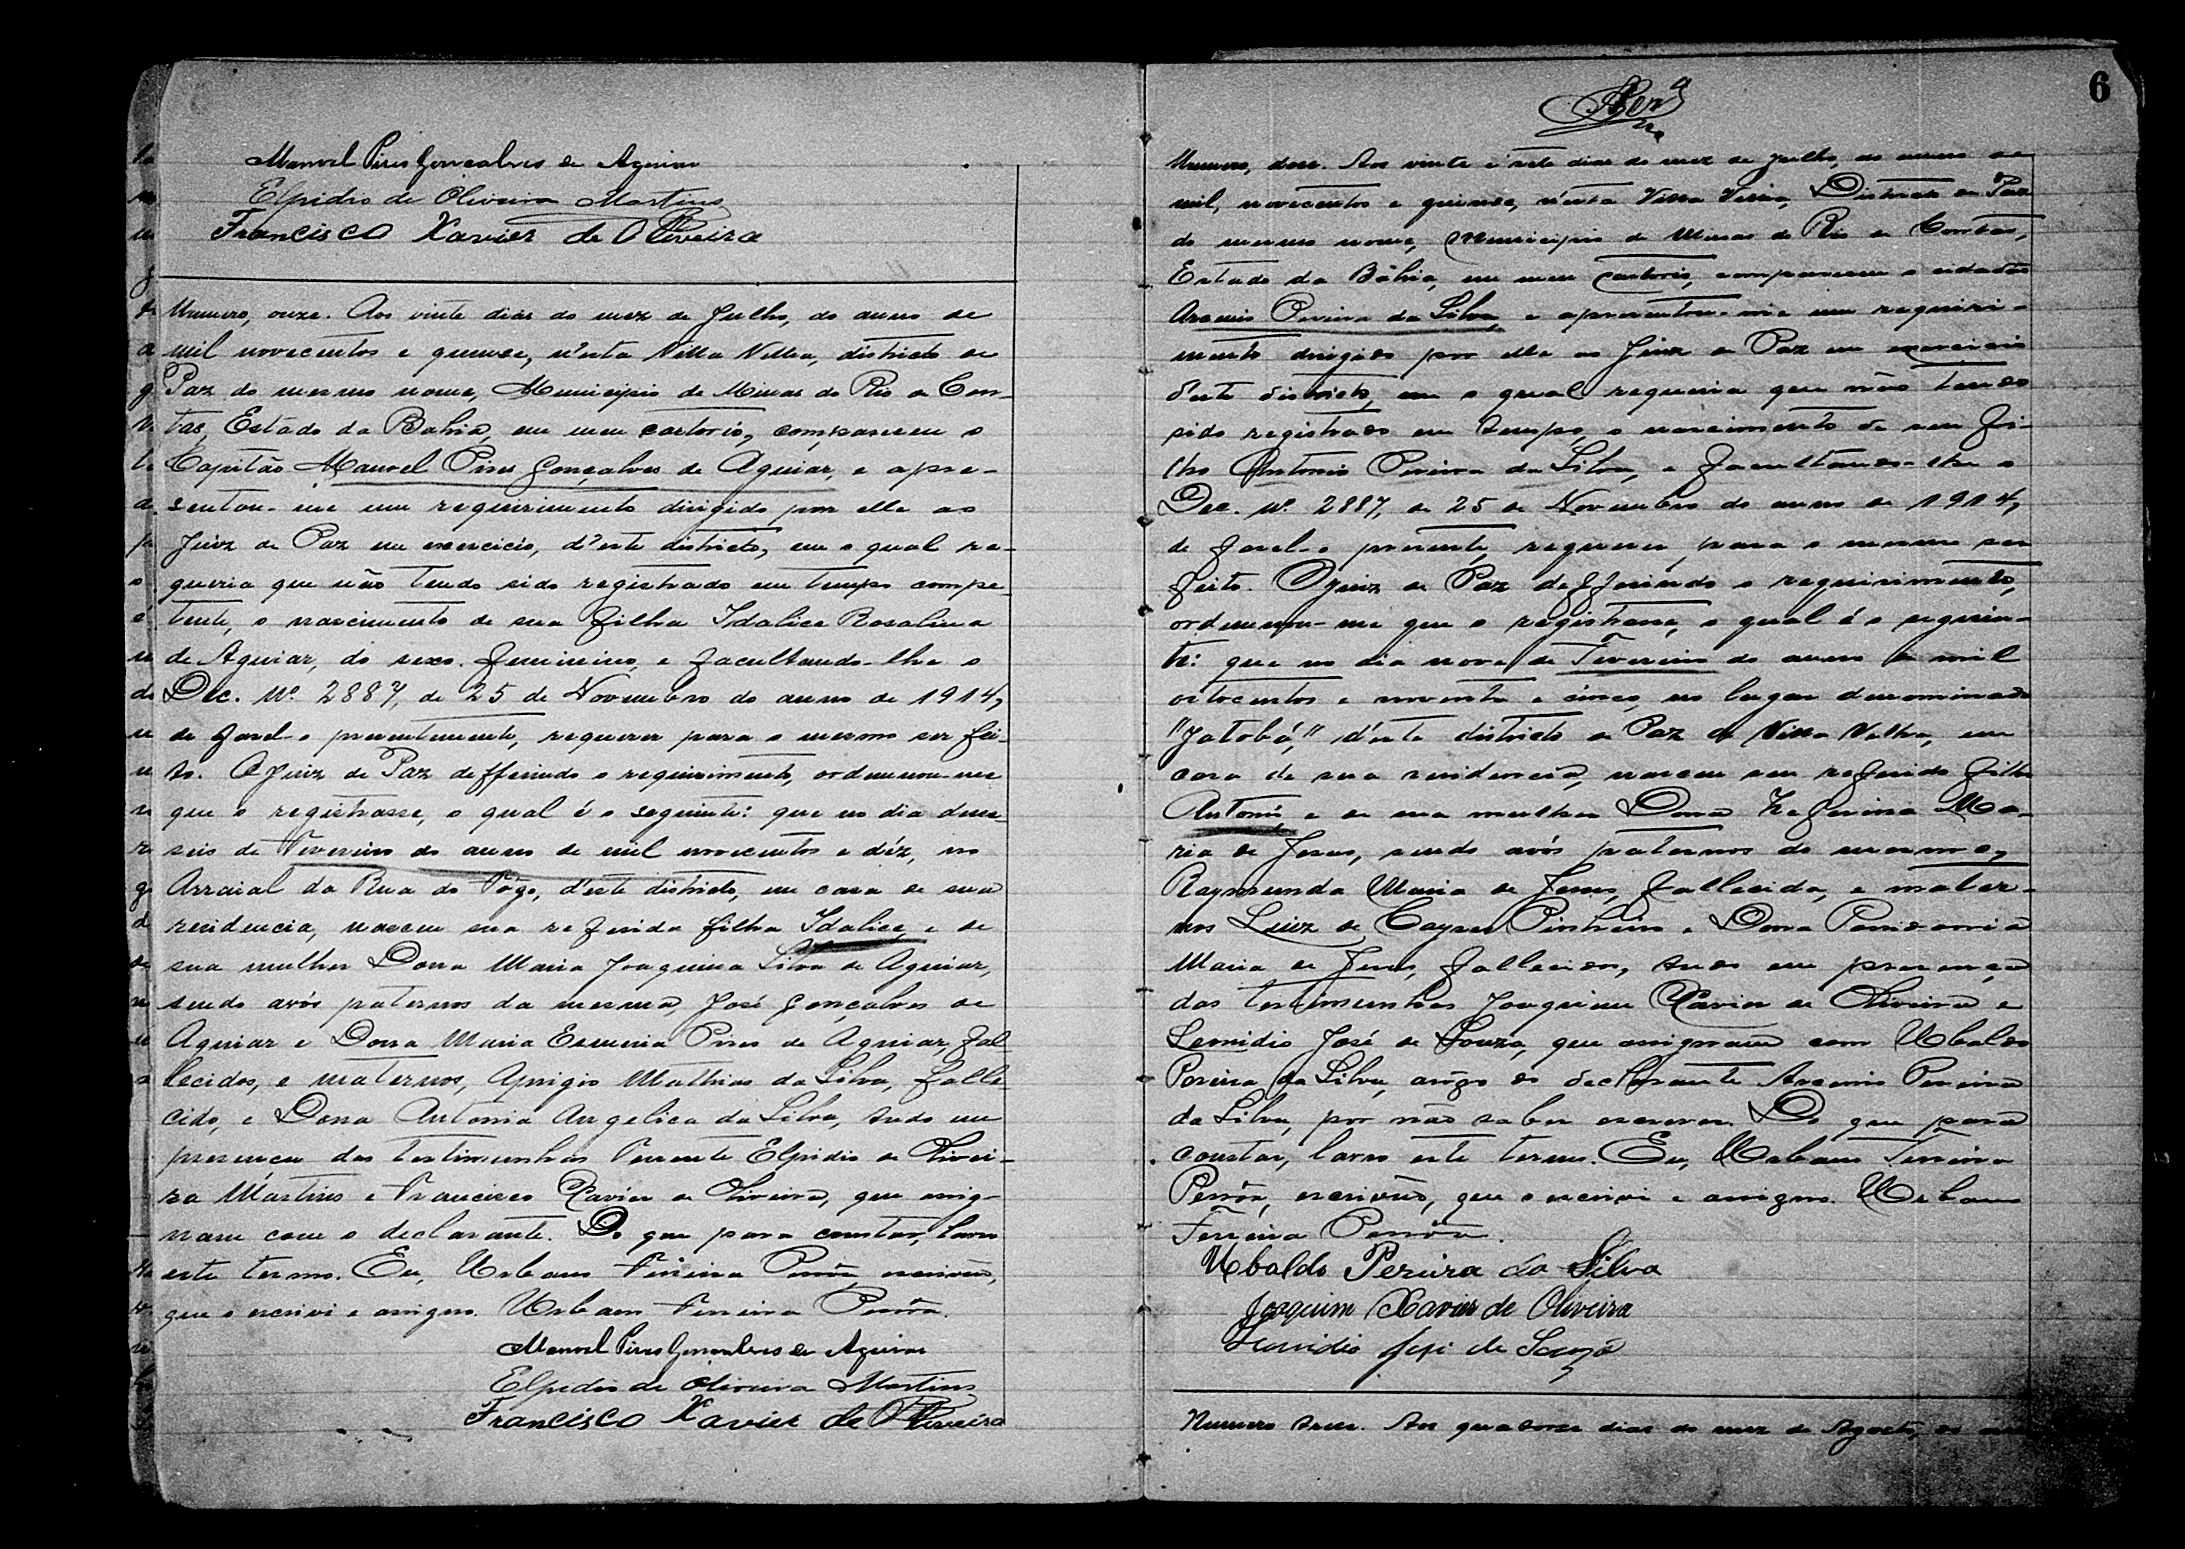 Manoel Pires Gonçalves de Aguiar
Elpidio de Oliveira Martins
Francisco Xavier de Oliveira
Numero, onze. Aos vinte dias do mez de Julho, do anno de
mil novecentos e quinse, n'esta Villa Velha, districto de
Paz do mesmo nome, Municipio de Minas do Rio de Con-
tas, Estado da Bahia, em meu cartorio, compareceu o
Capitão Manoel Pires Gonçalves de Aguiar, e apre-
sentou-me um requirimento dirigido por elle ao
Juiz de Paz em exercicio, d'este districto, em o qual re-
queria que não tendo sido registrado em tempo compe-
tente, o nascimento de sua filha Idalice Rosalina
de Aguiar, do sexo feminino, e facultando-lhe o
Dec. Nº 2887, de 25 de Novembro do anno de 1914,
de fasel-o presentemente, requerer para o mesmo ser fei-
to. O Juiz de Paz defferindo o requirimento, ordenou-me
que o registrasse, o qual é o seguinte: que no dia dese-
seis de Fevereiro do anno de mil novecentos e déz, no
Arraial da Rua do Fôgo, d'este districto, em casa de sua
residencia, nasceu sua referida filha Idalice, e de
sua mulher Dona Maria Joaquina Silva de Aguiar,
sendo avós paternos da mesma, José Gonçalves de
Aguiar e Dona Maria Esmeria Pires de Aguiar, fal-
lecidos, e maternos, Aprigio Mathias da Silva, falle-
cido, e Dona Antonia Angelica da Silva, tudo em
presença das testimunhas Tenente Elpidio de Olivei-
ra Martins e Francisco Xavier de Oliveira, que assig-
nam com o declarante. Do que para constar, lavro
este termo. Eu, Urbano Ferreira escrivão,
que o escrevi e assigno. Urbano Ferreira
Manoel Pires Gonçalves de Aguiar
Elpidio de Oliveira Martins
Francisco Xavier de Oliveira
6
Numero, dose. Aos vinte e sete dias do mez de Julho, do anno de
mil, novecentos e quinse, n'esta Villa Velha, Districto de Paz
do mesmo nome, Municipio de Minas do Rio de Contas,
Estado da Bahia, em meu cartorio, compareceu o cidadão
Pereira da Silva, e apresentou-me um requiri-
mento dirigido por elle ao Juiz de Paz em exercicio
d'este districto, em o qual requeria que não tendo
sido registrado em tempo, o nascimento de seu fi-
lho Antonio Pereira da Silva, e facultando-lhe o
Dec. Nº 2887, de 25 de Novembro do anno de 1914,
de fasel-o presente, requerer, para o mesmo ser
feito. O Juiz de Paz defferindo o requirimento,
ordenou-me que o registrasse, o qual é o seguin-
te: que no dia nove de Fevereiro do anno de mil
oitocentos e noventa e cinco, no lugar denominado
"Jatobá," d'este districto de Paz de Villa Velha, em
casa de sua residencia, nasceu seu referido filho
Antonio, e de sua mulher Dona Zeferina Ma-
ria de Jesus, sendo avós paternos do mesmo,
Raymunda Maria de Jesus, fallecida, e mater-
nos Luiz de Pinheiro e Dona
Maria de Jesus, fallecidos, tudo em presença
das testimunhas Joaquim Xavier de Oliveira e
Leonidio José de Souza, que assignam com Ubaldo
Pereira da Silva, arôgo do declarante Pereira
da Silva, por não saber escrever. Do que para
constar, lavro este termo. Eu, Urbano Ferreira
escrivão, que o escrevi e assigno. Urbano
Ferreira
Ubaldo Pereira da Silva
Joaquim Xavier de Oliveira
José de Souza
Numero trese. Aos quatorse dias do mez de Agosto, do